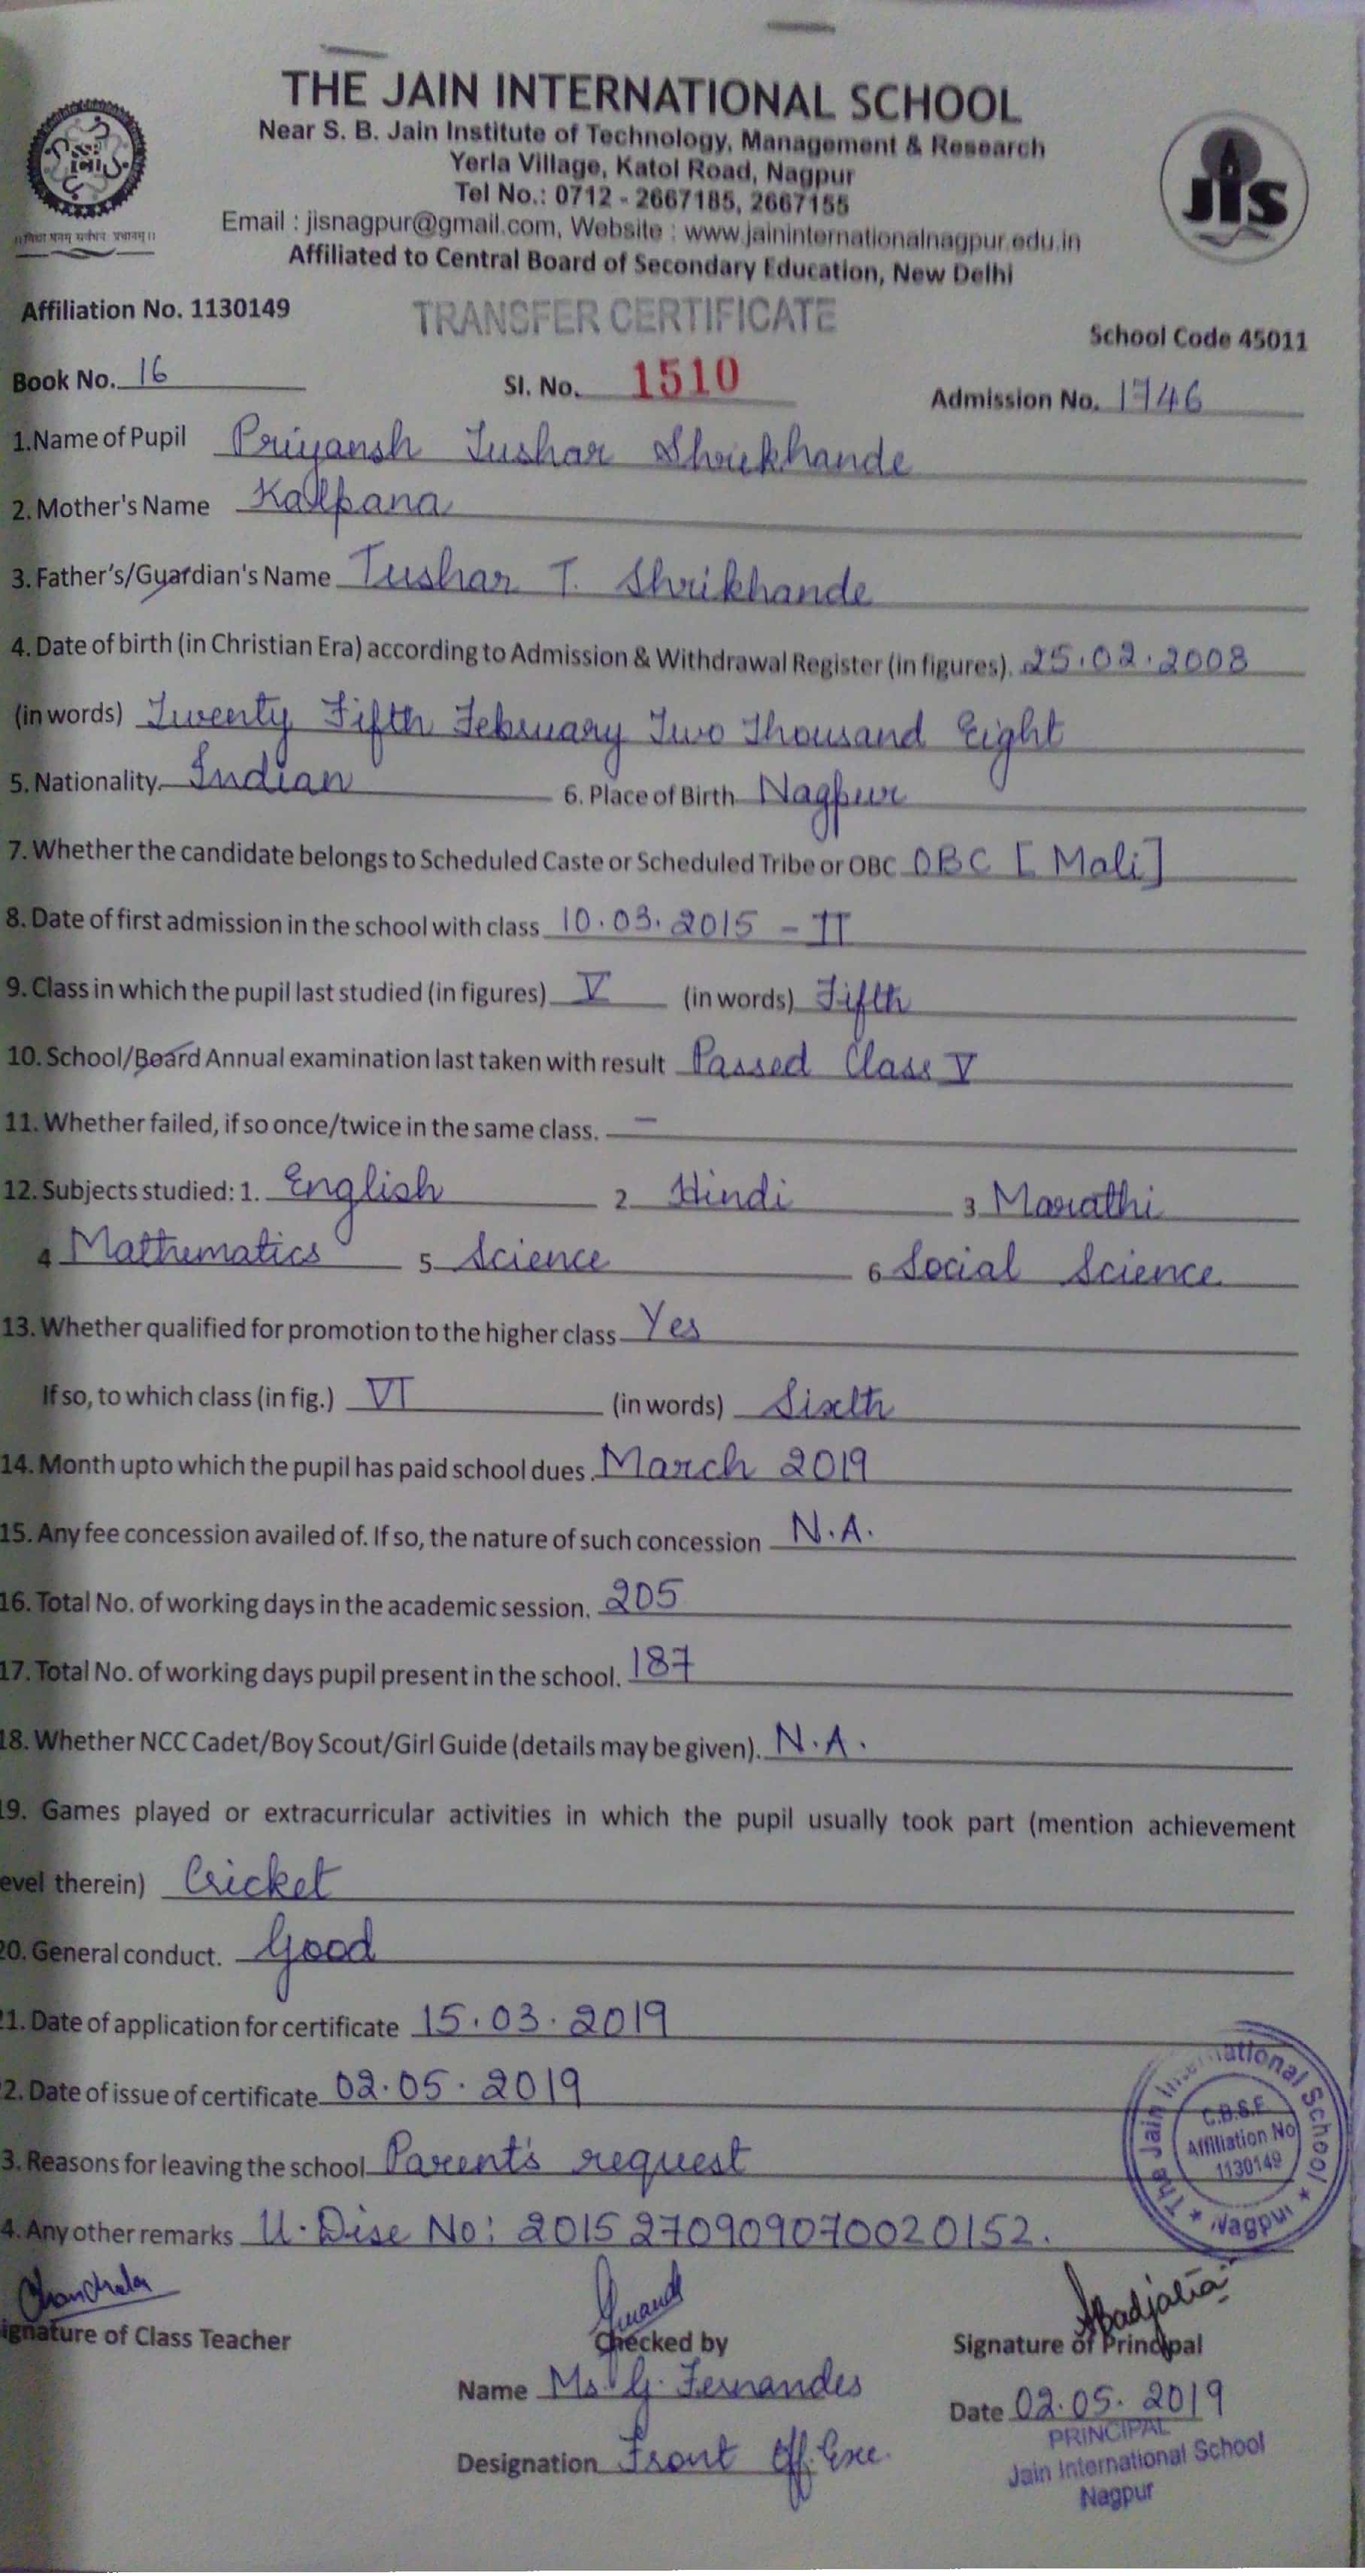 THE JAIN INTERNATIONAL SCHOOL
Near S. B. Jain Institute of Technology, Management & Research
Yerla Village, Katol Road, Nagpur
Tel No.: 0712 - 2667185, 2667155
Email : jisnagpur@gmail.com, Website : www.jaininternationalnagpur.edu.in
Affiliated to Central Board of Secondary Education, New Delhi
JIS
Affiliation No. 1130149 TRANSFER CERTIFICATE School Code 45011
Book No. 16 Sl. No. 1510 Admission No. 1746
1.Name of Pupil Priyansh Tushar Shrikhande
2. Mother's Name Kalpana
3. Father's/Guardian's Name Tushar T. Shrikhande
4. Date of birth (in Christian Era) according to Admission & Withdrawal Register (in figures). 25.02.2008
(in words) Twenty Fifth February Two Thousand Eight
5. Nationality. Indian 6. Place of Birth Nagpur
7. Whether the candidate belongs to Scheduled Caste or Scheduled Tribe or OBC OBC [Mali]
8. Date of first admission in the school with class 10.03.2015 - II
9. Class in which the pupil last studied (in figures) V (in words) Fifth
10. School/Board Annual examination last taken with result Passed Class V
11. Whether failed, if so once/twice in the same class. –
12. Subjects studied: 1. English 2. Hindi 3 Marathi
4 Mathematics 5 Science 6 Social Science
13. Whether qualified for promotion to the higher class Yes
If so, to which class (in fig.) VI (in words) Sixth
14. Month upto which the pupil has paid school dues. March 2019
15. Any fee concession availed of. If so, the nature of such concession N.A.
16. Total No. of working days in the academic session. 205
17. Total No. of working days pupil present in the school. 187
18. Whether NCC Cadet/Boy Scout/Girl Guide (details may be given). N.A.
19. Games played or extracurricular activities in which the pupil usually took part (mention achievement
evel therein) Cricket
20. General conduct. Good
21. Date of application for certificate 15.03.2019
2. Date of issue of certificate 02.05.2019
3. Reasons for leaving the school Parent's request
4. Any other remarks U-Dise No: 2015270909070020152.
The Jain International School
C.B.S.E
Affiliation No
1130149
Nagpur
ignature of Class Teacher Checked by Signature of Principal
Name Ms. G. Fernandes Date 02.05.2019
PRINCIPAL
Designation Front Off. Exe. Jain International School
Nagpur